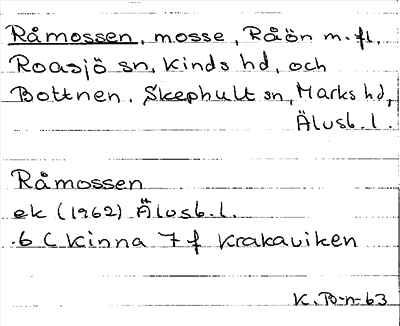 Råmossen, mosse, Råön m.fl.
Roasjö sn, Kinds hd, och
Bottnen, Skephult sn, Marks hd,
Älvsb. l.
Råmossen
ek (1962) Älvsb. l.
6 C Kinna 7 f Krakaviken
K. B-n-63